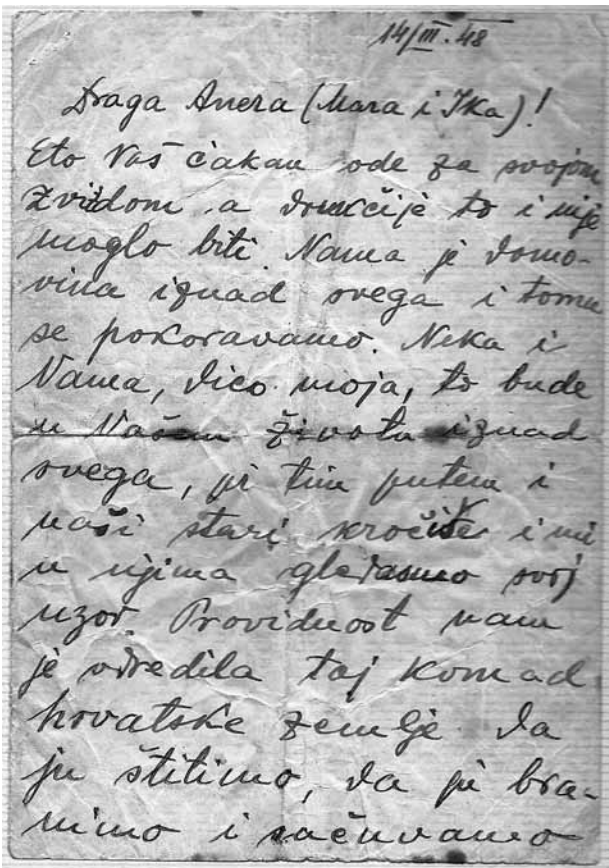 14/III. 48
Draga Anera (Mara i Ika)!
Eto Vaš ćakan ode za svojom
zvizdom a drukčije to i nije
moglo biti. Nama je domo-
vina iznad svega i tomu
se pokoravamo. Neka i
Vama, dico moja, to bude
u Vašem životu iznad
svega, jer tim putem i
naši stari kročiše i mi
u njima gledasmo svoj
uzor. Providnost nam
je odredila taj komad
hrvatske zemlje da
ju štitimo, da ju bra-
nimo i sačuvamo